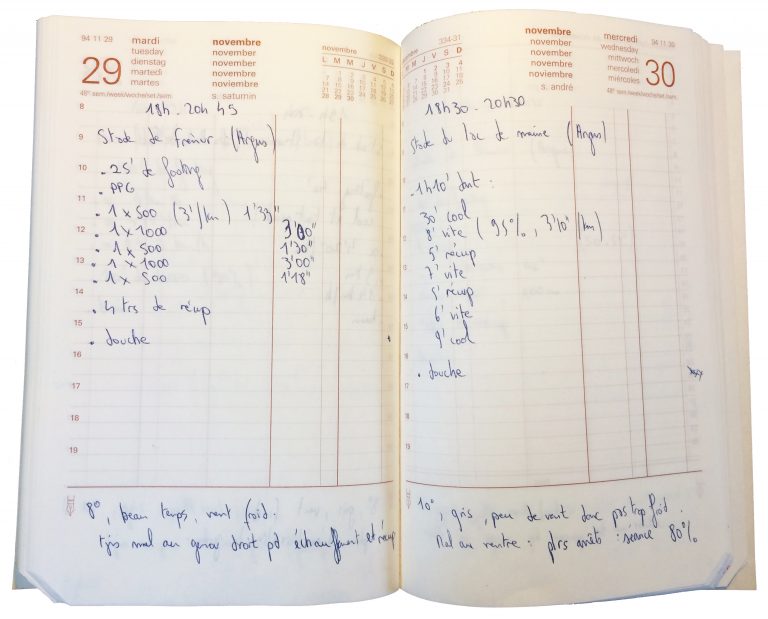 94 11 29
mardi
tuesday
dienstag
martedi
martes
29
48e sem./week/woche/set./sem.
novembre
november
november
novembre
noviembre
s. saturnin
novembre 333-32
L M M J V S D
1 2 3 4 5 6
7 8 9 10 11 12 13
14 15 16 17 18 19 20
21 22 23 24 25 26 27
28 29 30
8
18h - 20h 45
9
Stade de (Angers)
10
. 25' de footing
. PPG
11
. 1 x 500 (3'/km) 1'33"
12
. 1 x 1000 3'00"
. 1 x 500 1'30"
13
. 1 x 1000 3'00"
. 1 x 500 1'18"
14
. 4 trs de récup
15
. douche
16
17
18
19
8°, beau temps, vent froid.
tjs mal au genou droit pd échauffement et récup
novembre 334-31
L M M J V S D
novembre
november
november
novembre
noviembre
s. andré
mercredi
wednesday
mittwoch
mercoledi
miércoles
94 11 30
30
48e sem./week/woche/set./sem.
18h30 - 20h30
Stade du lac de maine (Angers)
. 1h10' dont :
30' cool
8' vite ( 95%, 3'10" /km)
5' récup
7' vite
5' récup
6' vite
9' cool
. douche
10°, gris, peu de vent donc pas trop froid.
Mal au ventre : plrs arrêts : séance 80%